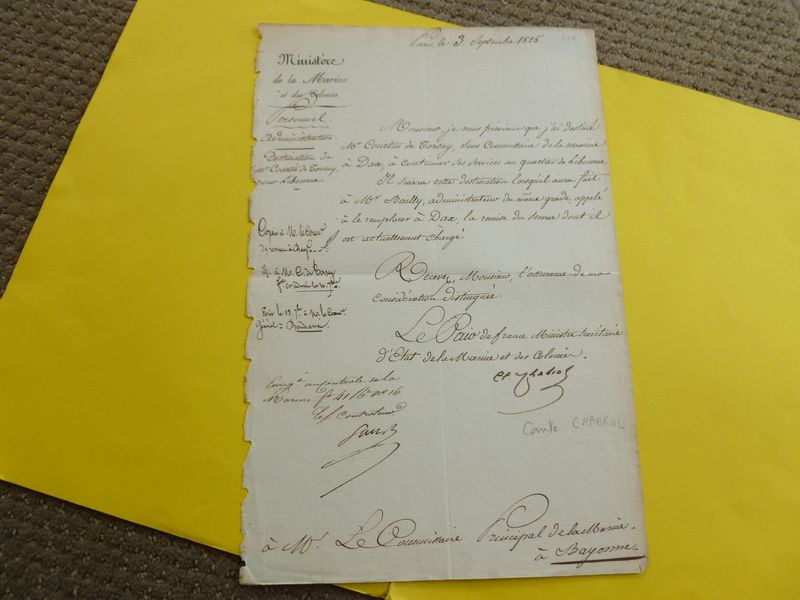 Paris, le 3. Septembre 1825.
Ministère
de la Marine
et des Colonies
Personnel.
Administration.
Destination de
Mr. Courtin de Torsay,
pour Libourne.
Monsieur, je vous préviens que j'ai destiné
Mr. Courtin de Torsay, sous Commissaire de la marine
à Dax, à continuer ses services au quartier de Libourne.
Il suivra cette destination lorsqu'il aura fait
à Mr. Bailly, administrateur du même grade, appelé
à le remplacer à Dax, la remise du service dont il
est actuellement chargé.
Copie à M. le
à M. C. de Torsay
Ecrit le 13. 7bre à M. le
Génal à Bordeaux
Recevez, Monsieur, l'assurance de ma
considération distinguée.
Le Pair de france Ministre Secrétaire
d'Etat de la Marine et des Colonies.
Cte Chabrol
Enregé au contrôle de la
Marine fo 41 Ro no 16
Le Controleur
Comte CHABROL
à Mr. Le Commissaire Principal de la Marine
à Bayonne